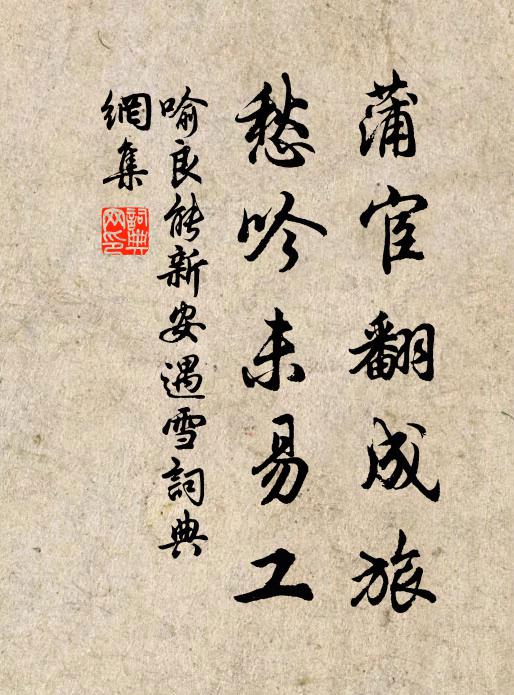 蒲宦翻成旅
愁吟未易工
喻良能新安遇雪詞典
網集
詞典網印